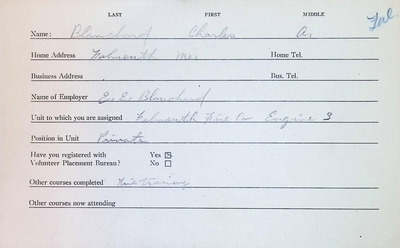 LAST FIRST MIDDLE
Name: Blanchard Charles A. Fal.
Home Address Falmouth Me. Home Tel.
Business Address Bus. Tel.
Name of Employer E. E. Blanchard
Unit to which you are assigned Falmouth Fire Co Engine 3
Position in Unit Private
Have you registered with Yes
Volunteer Placement Bureau? No
Other courses completed training
Other courses now attending